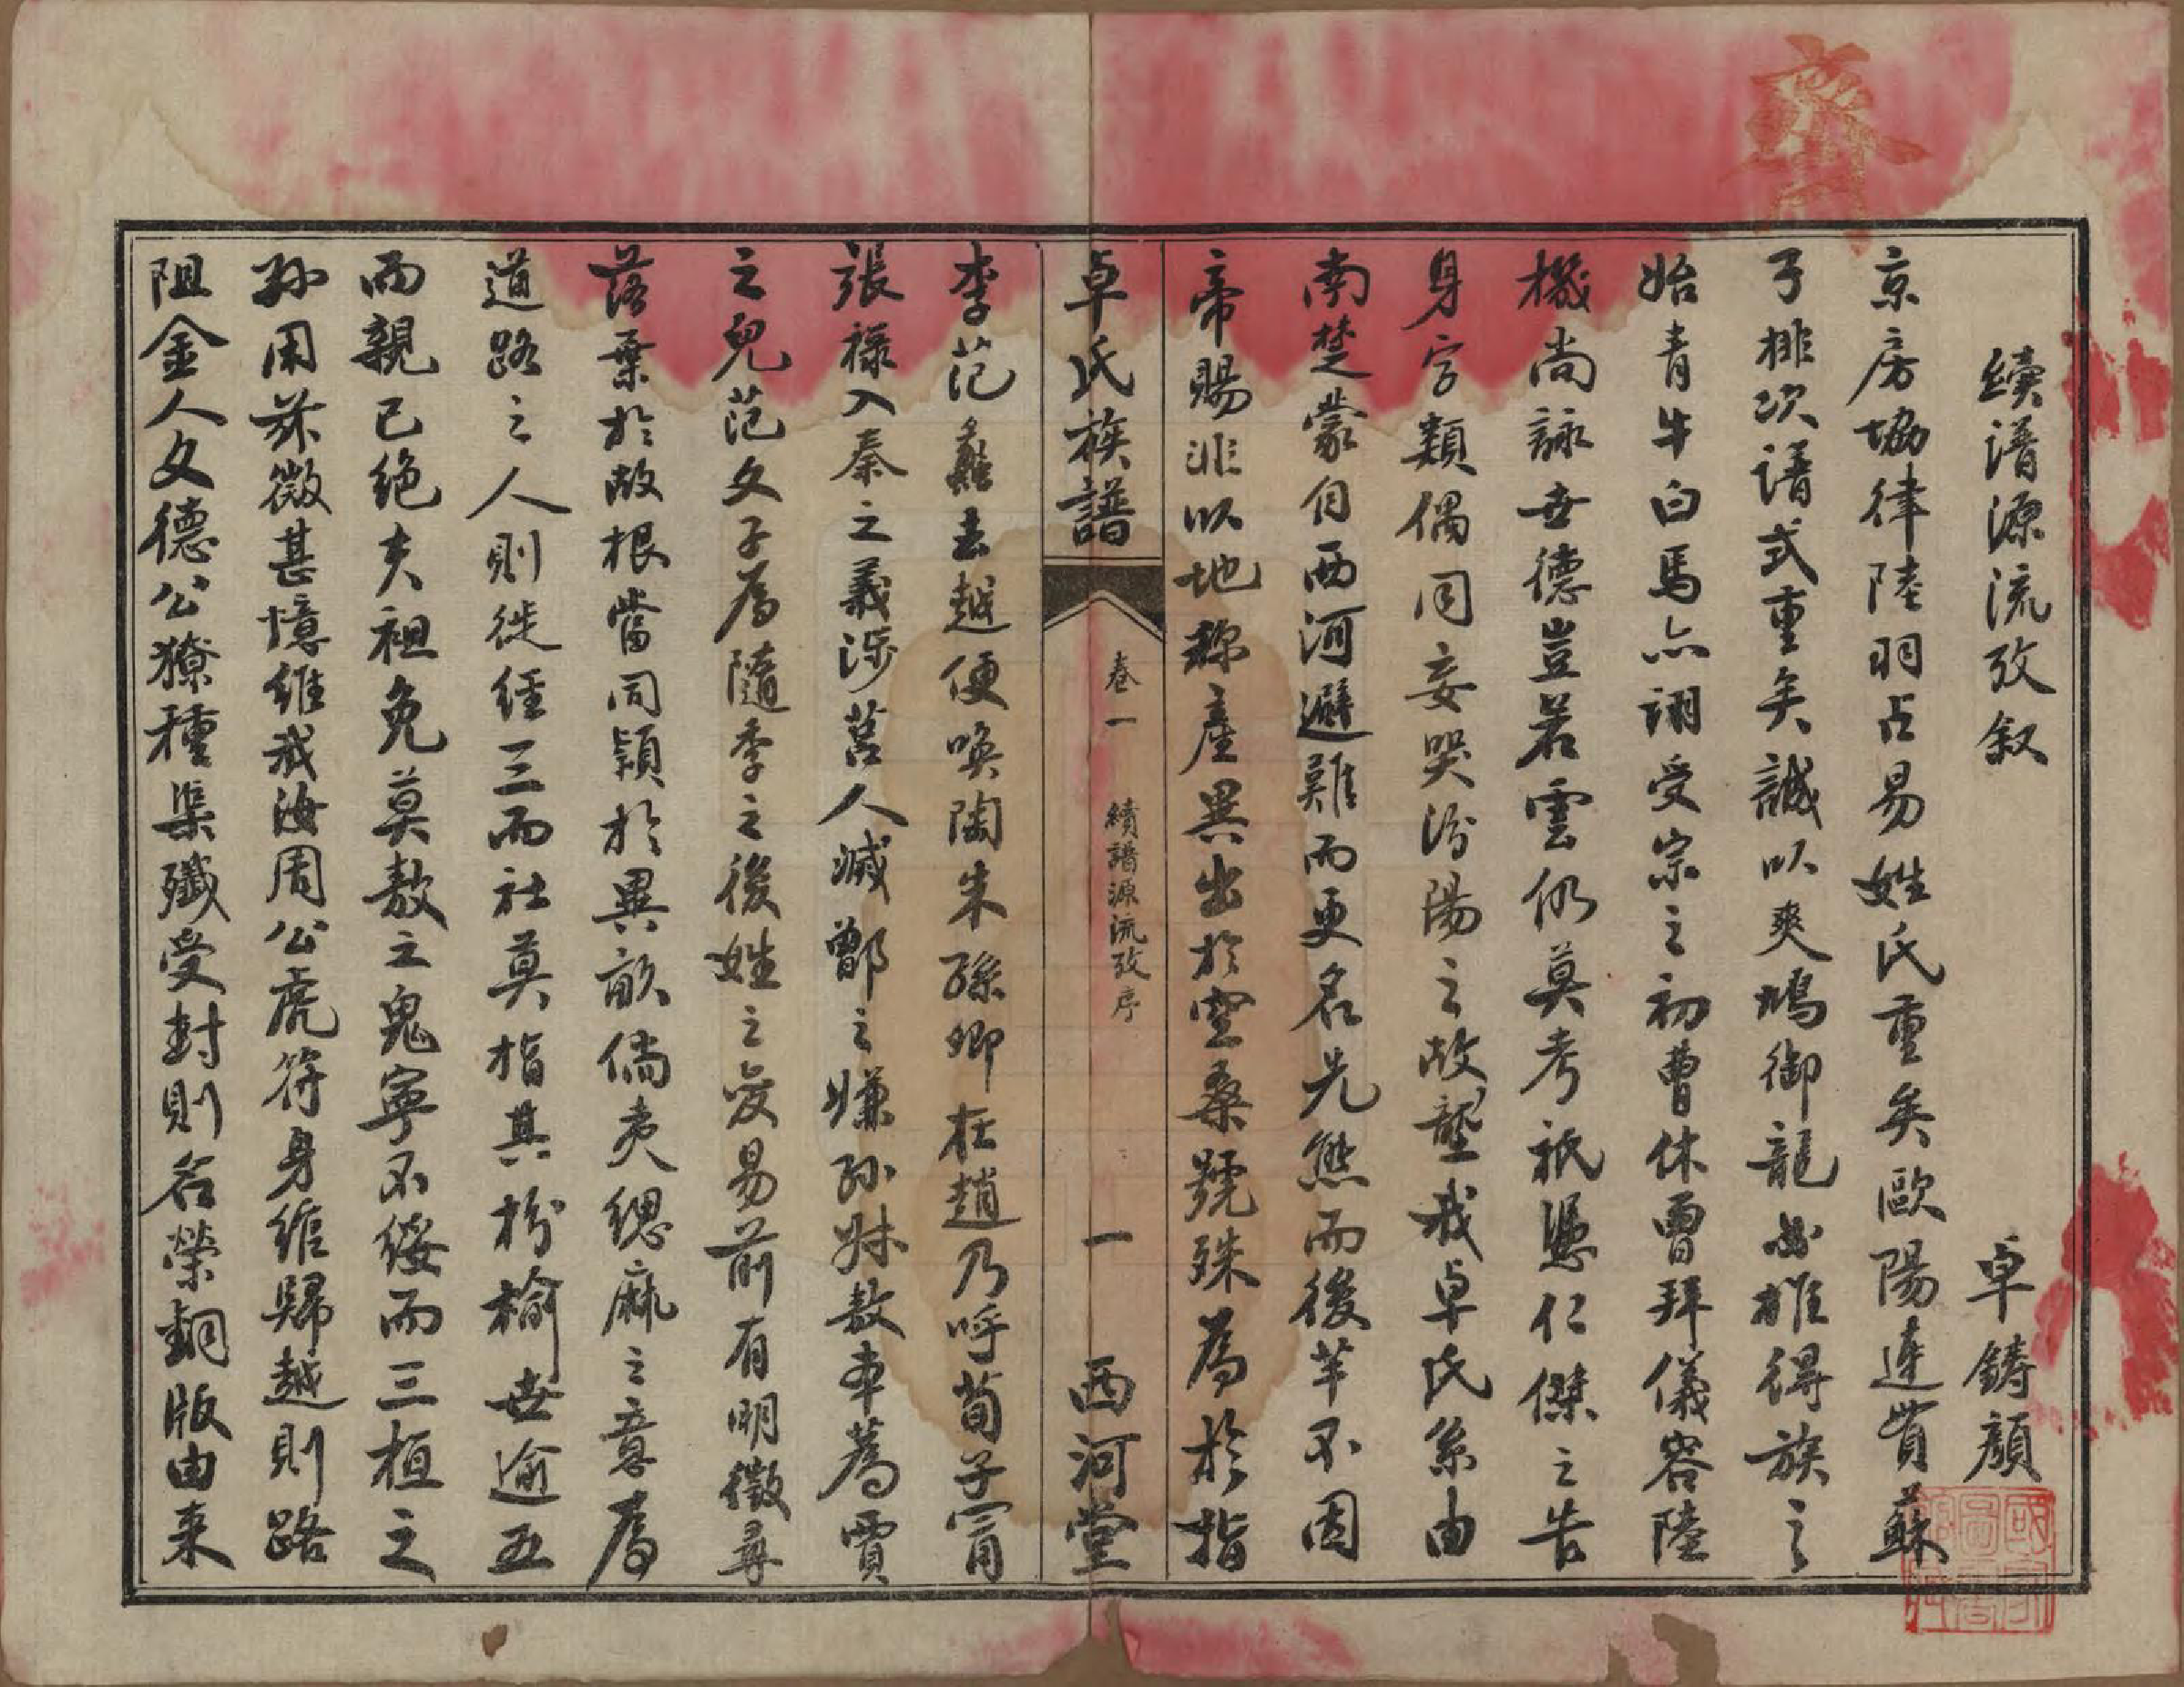 續譜源流攷叙
卓鑄顏
京房協律陸羽占易姓氏重矣歐陽連貫蘇
子排次譜式重矣誠以爽鳩御龍必推得族之
始青牛白馬亦詡受宗之初曹休曾拜儀容陸
機尚詠世德豈若雲仍莫考祇憑仁傑之告
身字類偶同妄哭汾陽之故壟我卓氏系由
南楚蒙自西河避難而更名先熊而後羋不因
帝賜非以地称產異出於空桑號殊為於指
卓氏族譜
卷一 續譜源流攷序
一
西河堂
李范蠡去越便喚陶朱孫卿在趙乃呼荀子甯
張祿入秦之義涉莒人滅鄫之嫌孫叔敖本蒍賈
之兒范文子為隨季之後姓之变易前有明徵尋
落葉於故根當同穎於異畝倘夷緦麻之意為
道路之人則徙經三而社莫指其枌榆世逾五
而親已絶夫祖免莫敖之鬼寧不餒而三桓之
孙用茶微甚憶維我海周公虎符身綰歸越則路
阻金人文德公獠種渠殲受封則名榮銅版由来